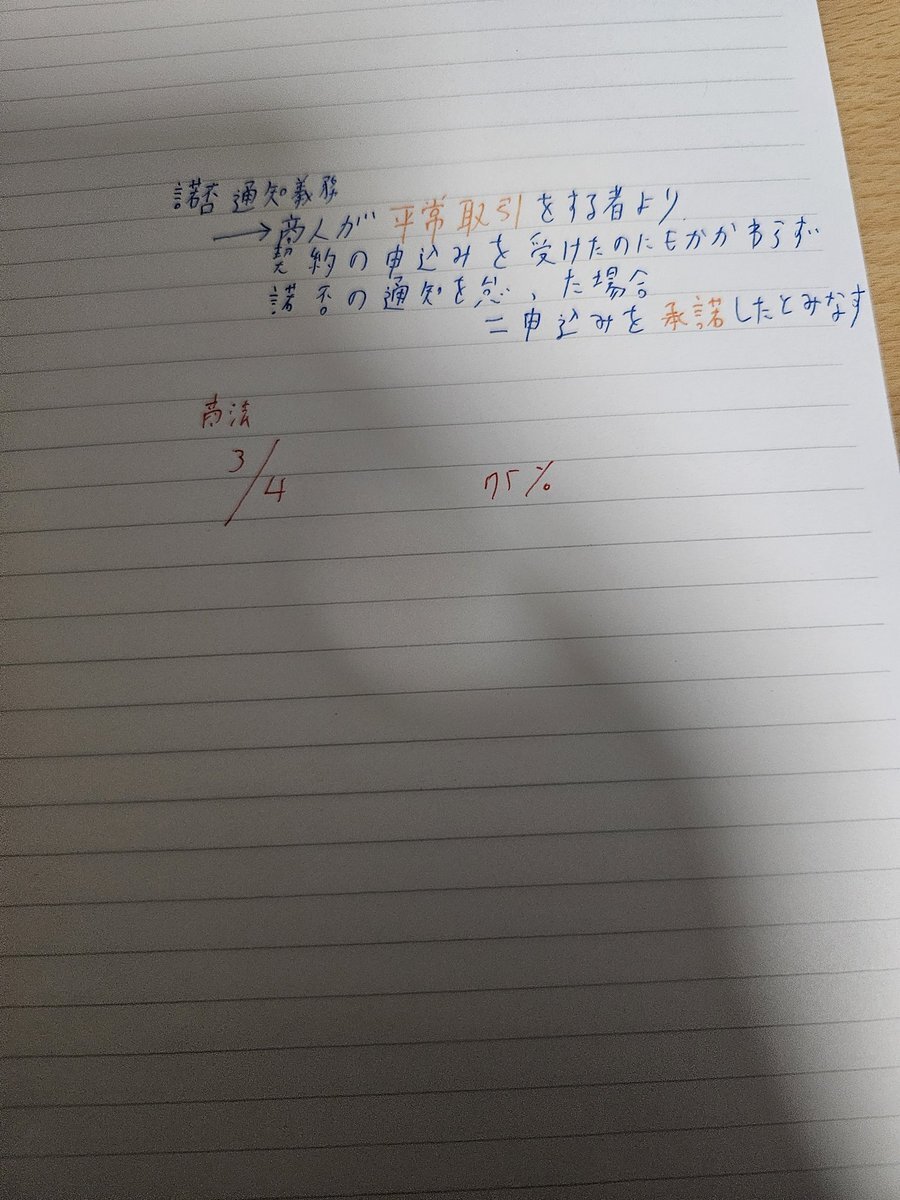 諾否通知義務
→商人が平常取引をする者より
契約の申込みを受けたのにもかかわらず
諾否の通知を怠った場合
=申込みを承諾したとみなす
商法
3/4 75%